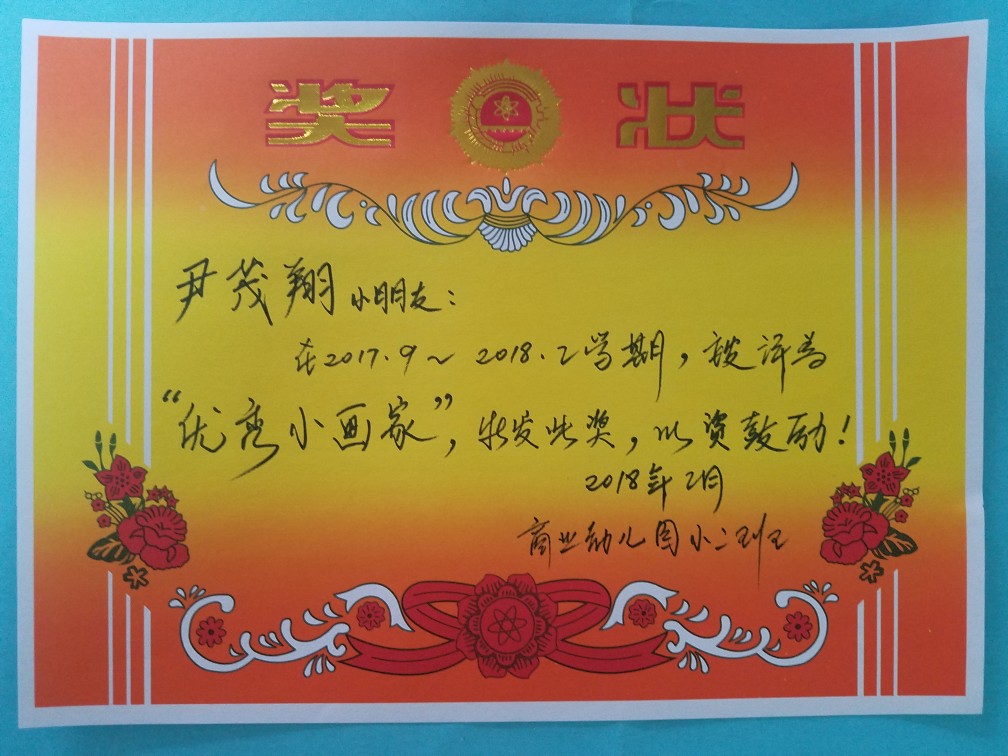 奖状
尹茂翔小朋友：
在2017.9～2018.2学期，被评为
“优秀小画家”，特发此奖，以资鼓励！
2018年2月
商业幼儿园小二班